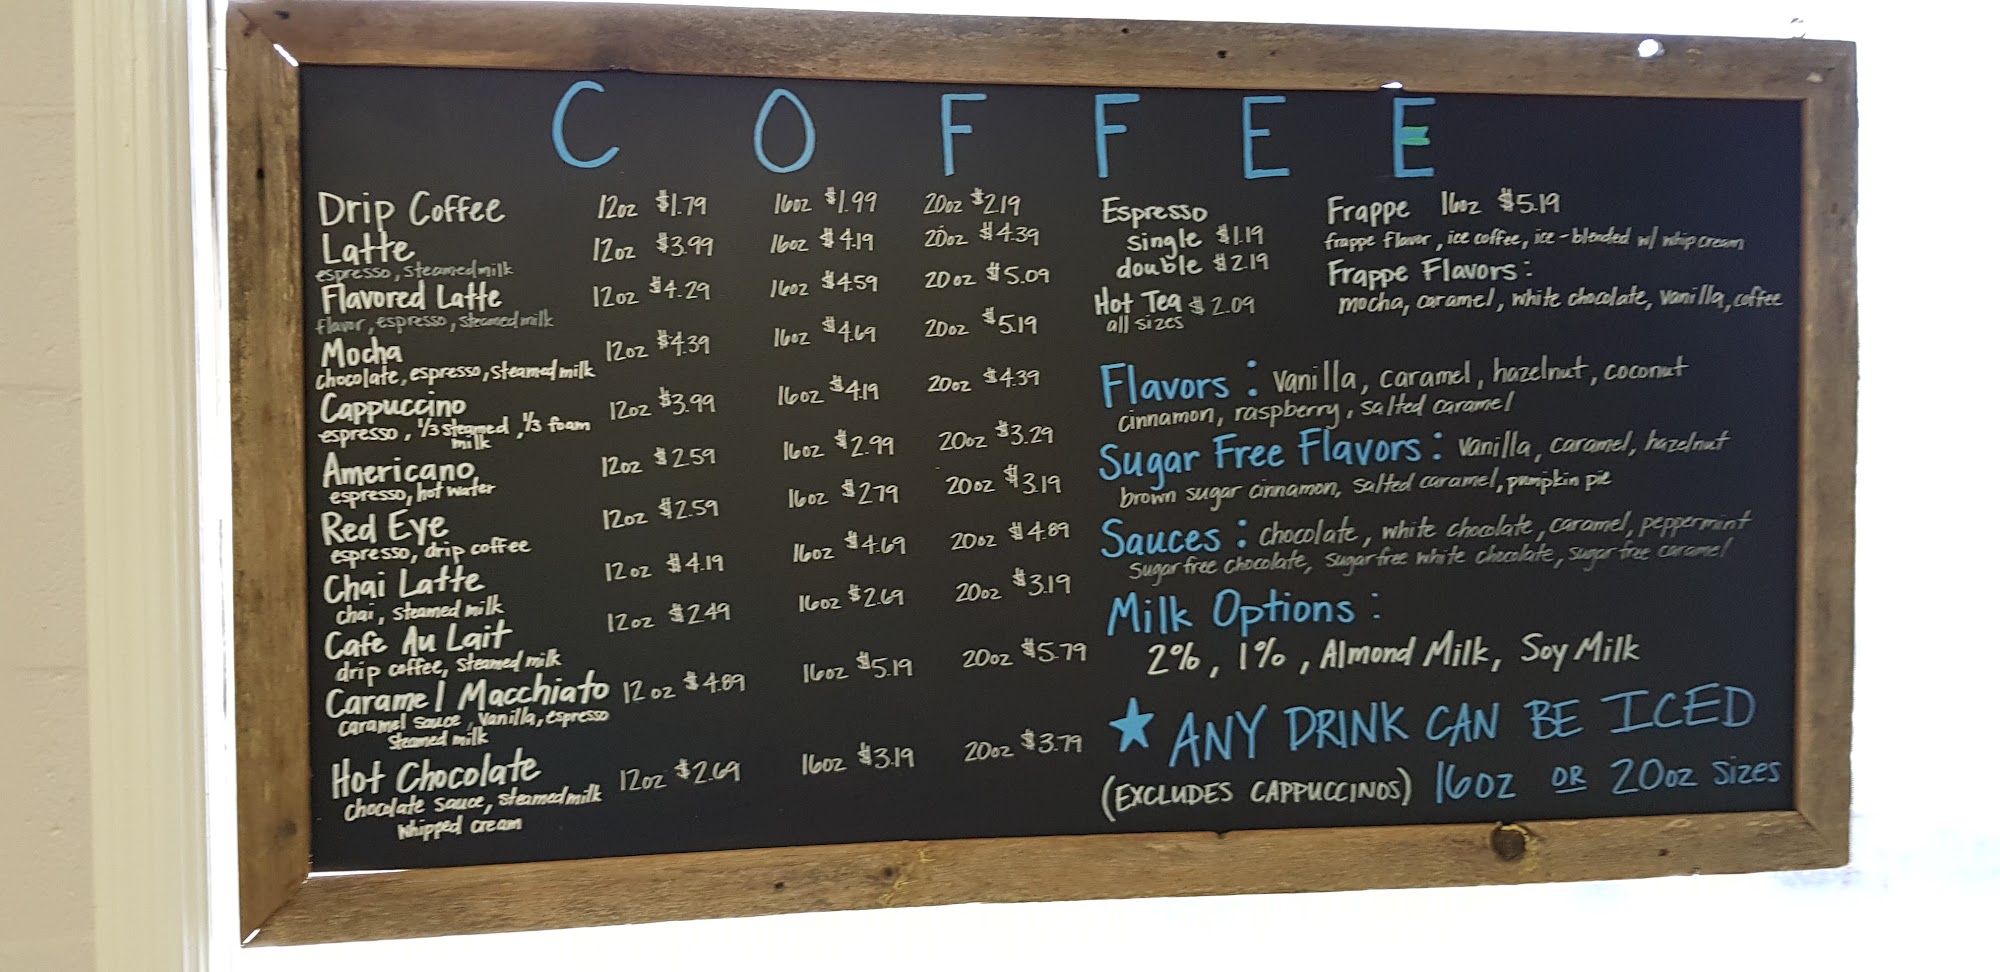 COFFEE
Drip Coffee 12oz $1.79 16oz $1.99 20oz $2.19
Latte 12oz $3.99 16oz $4.19 20oz $4.39
espresso, steamed milk
Flavored Latte 12oz $4.29 16oz $4.59 20oz $5.09
flavor, espresso, steamed milk
Mocha 12oz $4.39 16oz $4.69 20oz $5.19
chocolate, espresso, steamed milk
Cappuccino 12oz $3.99 16oz $4.19 20oz $4.39
espresso, 1/3 steamed, 1/3 foam
milk
Americano 12oz $2.59 16oz $2.99 20oz $3.29
espresso, hot water
Red Eye 12oz $2.59 16oz $2.79 20oz $3.19
espresso, drip coffee
Chai Latte 12oz $4.19 16oz $4.69 20oz $4.89
chai, steamed milk
Cafe Au Lait 12oz $2.49 16oz $2.69 20oz $3.19
drip coffee, steamed milk
Caramel Macchiato 12oz $4.89 16oz $5.19 20oz $5.79
caramel sauce, vanilla, espresso
steamed milk
Hot Chocolate 12oz $2.69 16oz $3.19 20oz $3.79
chocolate sauce, steamed milk
whipped cream
Espresso
single $1.19
double $2.19
Hot Tea $2.09
all sizes
Frappe 16oz $5.19
frappe flavor, ice coffee, ice-blended w/ whip cream
Frappe Flavors:
mocha, caramel, white chocolate, vanilla, coffee
Flavors: vanilla, caramel, hazelnut, coconut
cinnamon, raspberry, salted caramel
Sugar Free Flavors: vanilla, caramel, hazelnut
brown sugar cinnamon, salted caramel, pumpkin pie
Sauces: chocolate, white chocolate, caramel, peppermint
sugar free chocolate, sugar free white chocolate, sugar free caramel
Milk Options:
2%, 1%, Almond Milk, Soy Milk
★ ANY DRINK CAN BE ICED
(EXCLUDES CAPPUCCINOS) 16oz OR 20oz sizes